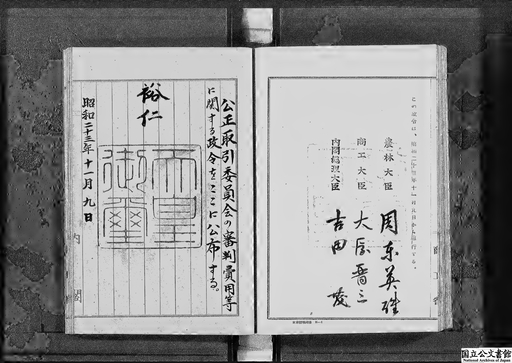 公正取引委員会の審判費用等
に関する政令をここに公布する。
裕仁
天皇
御璽
昭和二十三年十一月九日
内閣
農林大臣 周東英雄
商工大臣 大屋晋三
内閣総理大臣 吉田茂
国立公文書館
National Archives of Japan